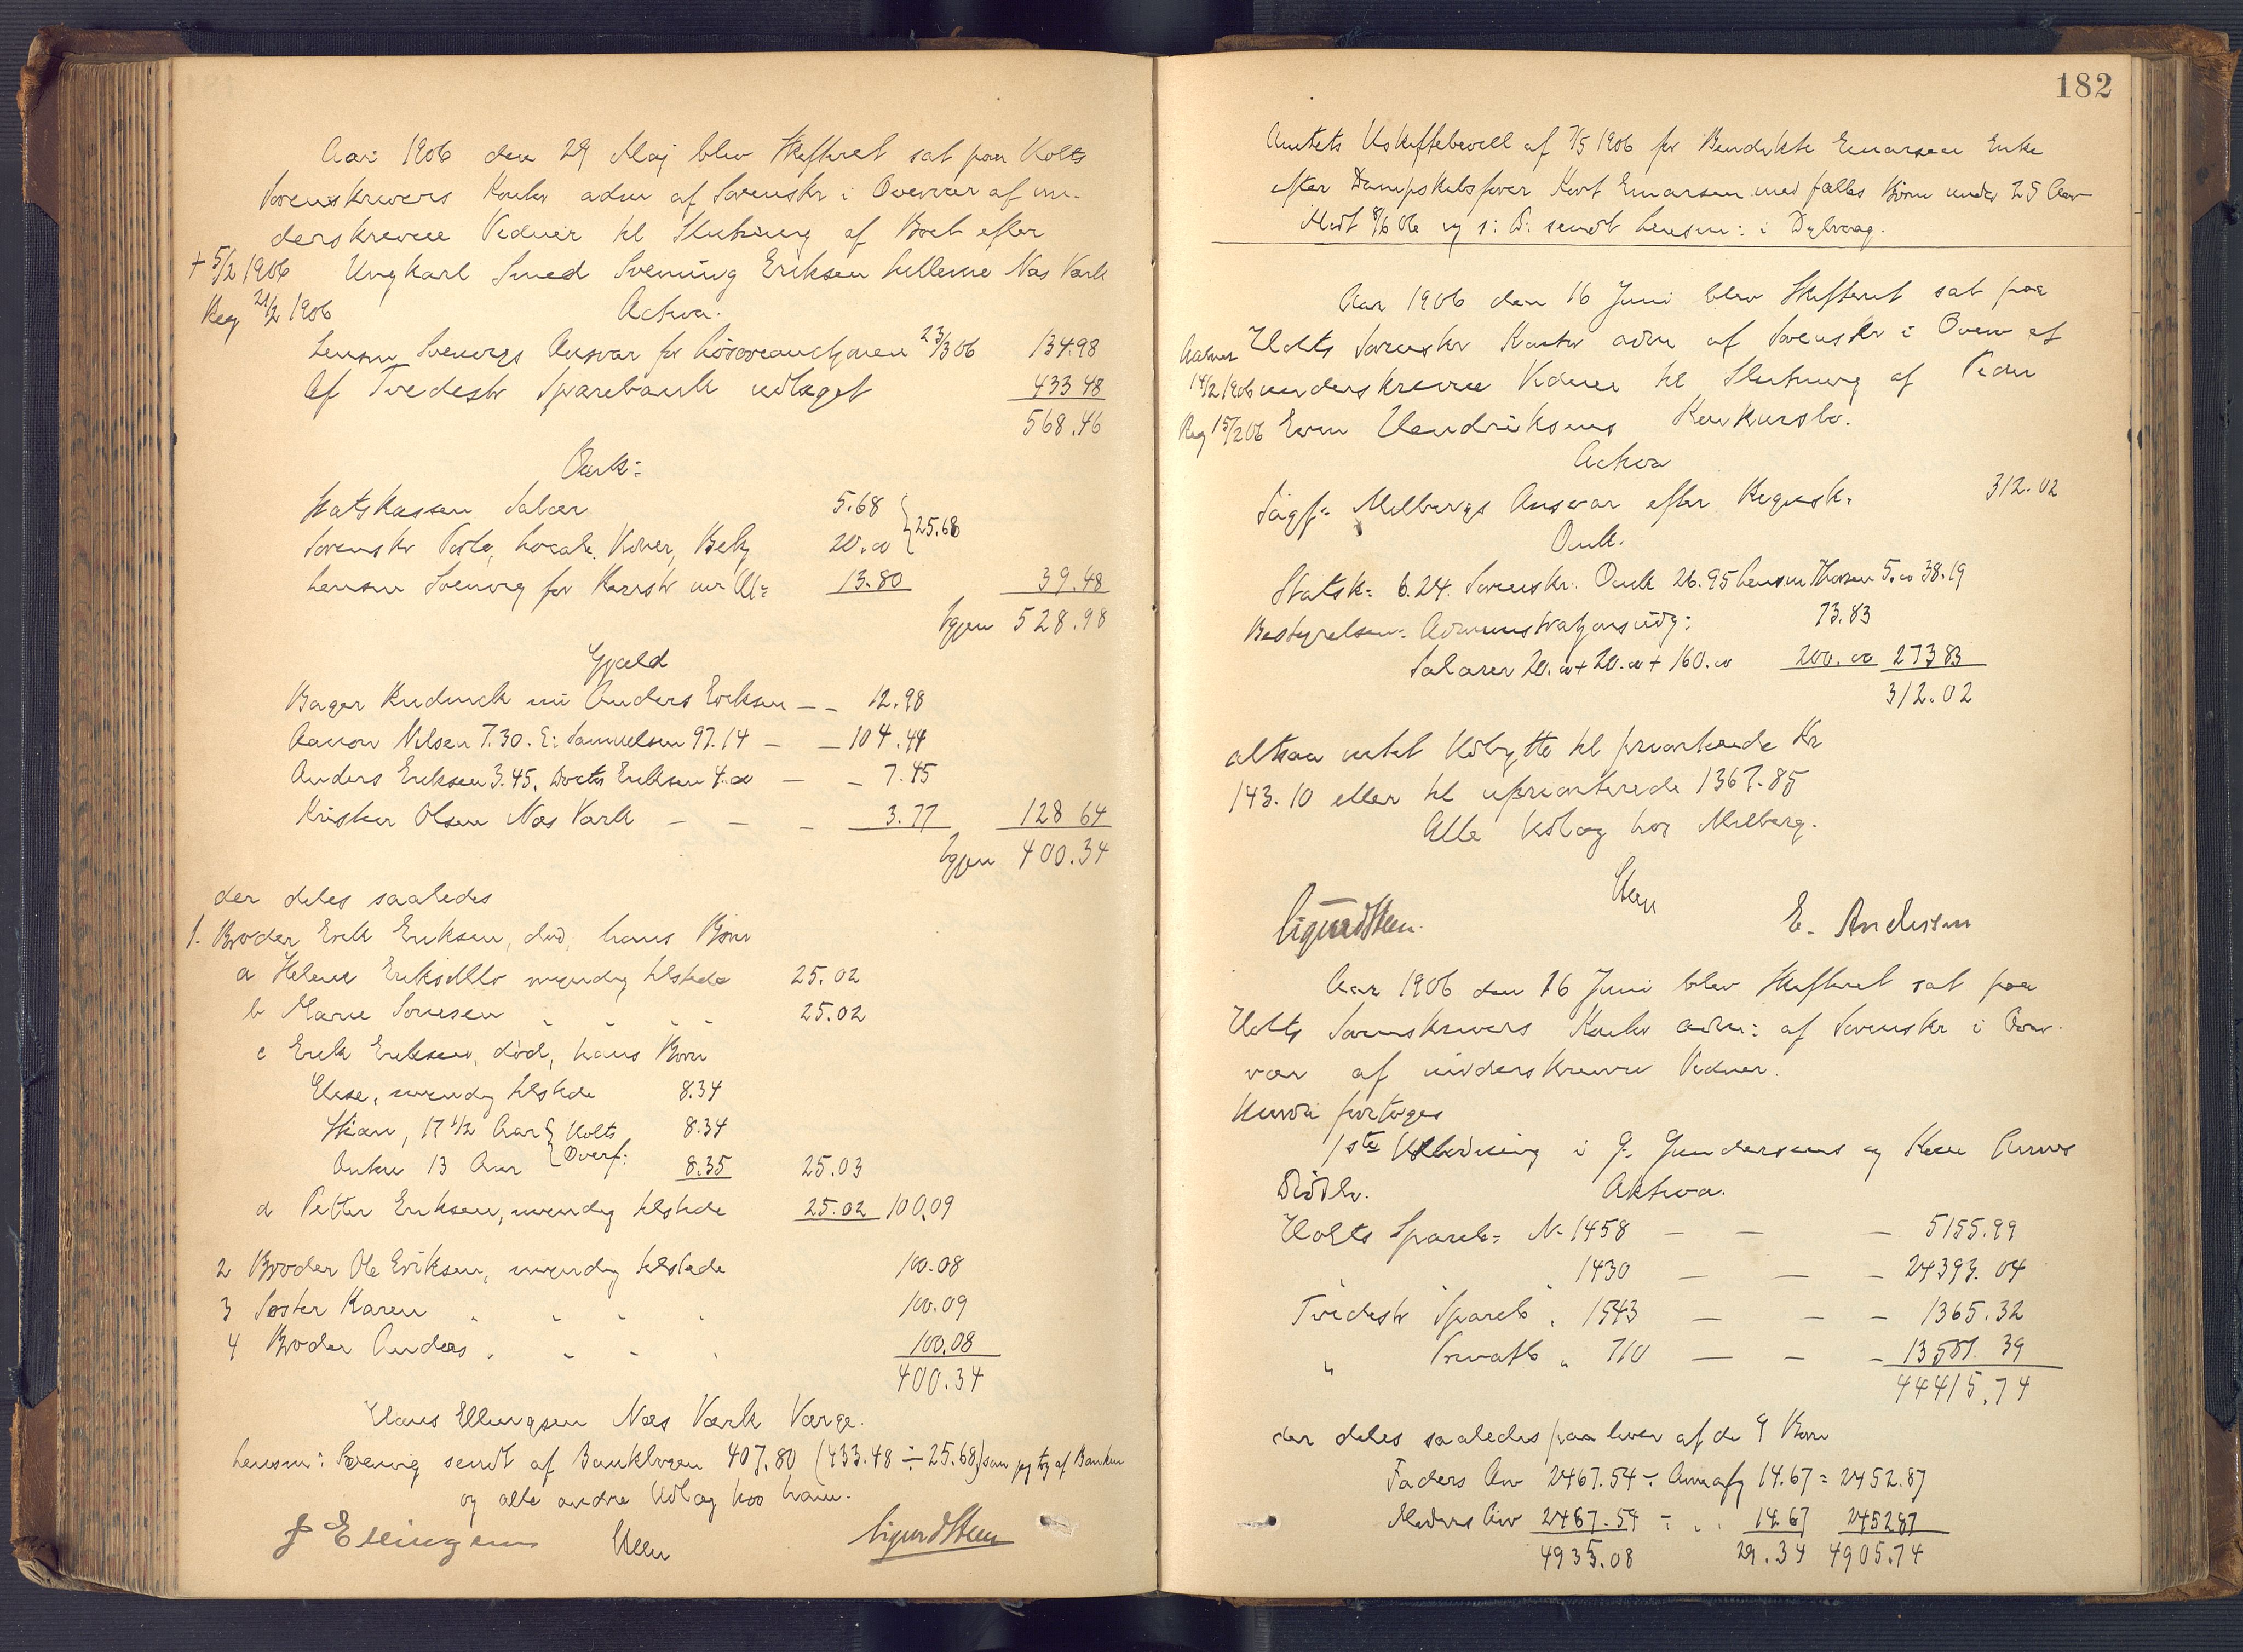 Aar 1906 den 29 Maj blev Skifteret sat paa Holts
Sorenskrivers Kontor adm af Sorenskr i Overvær af un-
derskrevne Vidner til Slutning af Boet efter
+ 5/2 1906 Ungkarl Smed Svening Eriksen Næs Værk
Reg 21/2 1906 Activa.
Lensm Svenings Ansvar for Løsøreauctionen 23/3 06 134.98
Af Tvedestr Sparebank udtaget 433 48
568.46
Omk:
Statskassen Salær 5.68
Sorenskr Porto, Locale, Vidner, Bekj 20.00 } 25.68
Lensm Svenning for Registr 13.80 39.48
Igjen 528.98
Gjæld
Bager Rudnick Anders Eriksen — — 12.98
Aanon Nilsen 7.30. E: Samuelsen 97.14 — — 104.44
Anders Eriksen 3.45. Dorthe Eriksen 4.00 — — 7.45
Olsen Næs Værk — — — 3.77 128 64
Igjen 400.34
der deles saaledes
1. Broder Erik Eriksen, død, hans Børn
a Helene Eriksen myndig tilstede 25.02
b Marie Sørensen " " " " 25.02
c Erik Eriksen, død, hans Børn
Elise, myndig tilstede 8.34
17 1/2 Aar { Holts 8.34
13 Aar { Overf: 8.35 25.03
d Petter Eriksen, myndig tilstede 25.02 100.09
2 Broder Ole Eriksen, myndig tilstede 100.08
3 Søster Karen " " " " 100.09
4 Broder Anders " " " " 100.08
400.34
Hans Ellingsen Næs Værk Værge.
Lensm: Svening sendt af Bankbogen 407.80 (433.48 ÷ 25.68) som jeg tog af Banken
og alle andre Udlæg hos ham.
J Ellingsen Steen Sigurd Steen
182
Amtets Uskiftebevill af 7/5 1906 for Bendikte Einarsen Enke
efter Dampskibsfører Einarsen med fælles Børn under 25 Aar
Medt 8/6 06 og s: D: sendt Lensm: i Dybvaag.
Aar 1906 den 16 Juni blev Skifteret sat paa
Holts Sorenskr Kontor adm af Sorenskr i Overv af
14/2 1906 underskrevne Vidner til Slutning af Peder
Reg 15/2 06 Even Hendriksens Konkursbo.
Activa
Sagf: Melbergs Ansvar efter Regnsk: 312.02
Omk.
Statsk: 6.24. Sorenskr: Omk 26.95 Lensm 5.00 38.19
Bestyrelsen: Administrationsudg: 73.83
Salærer 20.00 + 20.00 + 160.00 200.00 273 83
312.02
altsaa intet Udbytte til prioriterede Kr
143.10 eller til uprioriterede 1367.85
Alle Udlæg hos Melberg.
Steen
Sigurd Steen. E. Andersen
Aar 1906 den 16 Juni blev Skifteret sat paa
Holts Sorenskrivers Kontor adm: af Sorenskr i Over-
vær af underskrevne Vidner.
Hvorda foretoges
1ste Udlodning i G. Gundersens og Kone Annes
Dødsbo. Aktiva.
Holts Spareb: N. 1458 — — — 5155.99
" " 1430 — — — 24393.04
Tvedestr Spareb " 1543 — — — 1365.32
" Privatb " 710 — — — 13501.39
44415.74
der deles saaledes paa hver af de 9 Børn
Faders Arv 2467.54 ÷ Arveafg 14.67 = 2452.87
Moders Arv 2467.54 ÷ " " 14.67 2452 87
4935.08 29.34 4905.74